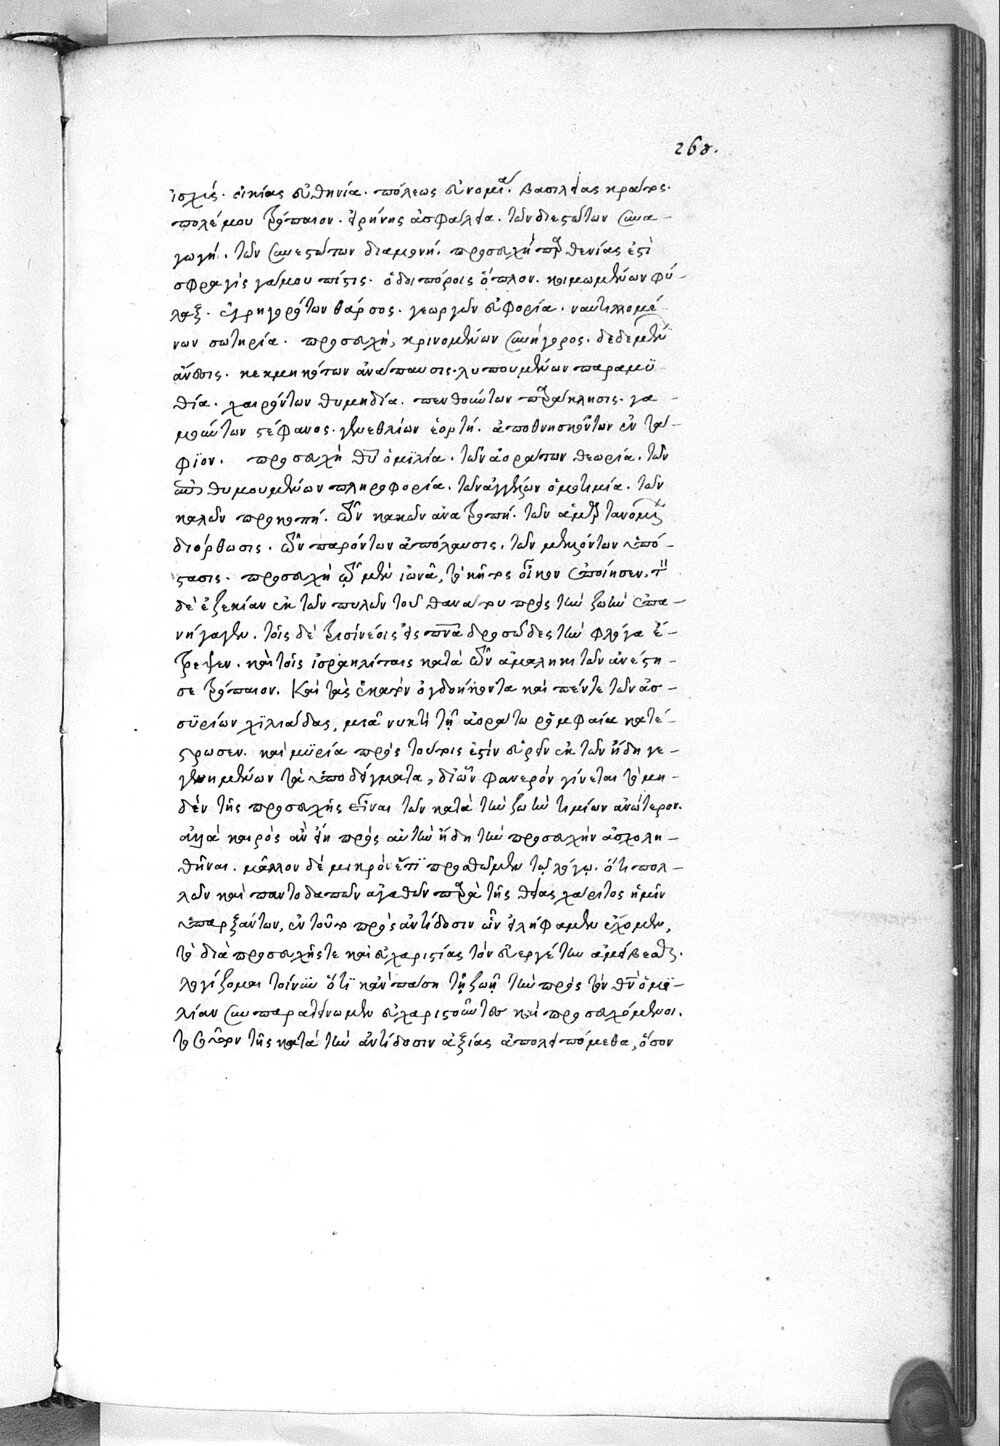 268.
ἰσχύς. οἰκίας εὐθηνία. πόλεως εὐνομία. βασιλείας κράτος.
πολέμου τρόπαιον. εἰρήνης ἀσφάλεια. τῶν διεστώτων συνα-
γωγή. τῶν συνεστώτων διαμονή. προσευχὴ παρθενίας ἐστὶ
σφραγὶς γάμου πίστις. ὁδοιπόροις ὅπλον. κοιμωμένων φύ-
λαξ. ἐγρηγορότων θάρσος. γεωργῶν εὐφορία. ναυτιλλομέ
νων σωτηρία. προσευχή, κρινομένων συνήγορος. δεδεμένων
ἄνεσις. κεκμηκότων ἀνάπαυσις. λυπουμένων παραμυ
θία. χαιρόντων θυμηδία. πενθούντων παράκλησις. γα-
μούντων στέφανος. γενεθλίων ἑορτή. ἀποθνησκόντων ἐντά-
φιον. προσευχὴ θυ ὁμιλία. τῶν ἀοράτων θεωρία. τῶν
ἐπιθυμουμένων πληροφορία. τῶν ἀγγέλων ὁμοτιμία. τῶν
καλῶν προκοπή. τῶν κακῶν ἀνατροπή. τῶν ἁμαρτανομένων
διόρθωσις. τῶν παρόντων ἀπόλαυσις. τῶν μελλόντων ὑπό-
στασις. προσευχὴ τῷ μὲν ἰωνᾶ, τὸ κῆτος οἶκον ἐποίησεν. τὸν
δὲ ἐζεκίαν ἐκ τῶν πυλῶν τοῦ θανάτου πρὸς τὴν ζωὴν ἐπα-
νήγαγεν. τοῖς δὲ τρισὶ νέοις εἰς πνα δροσῶδες τὴν φλόγα ἔ-
τρεψεν. καὶ τοῖς ἰσραηλίταις κατὰ τῶν ἀμαληκιτῶν ἀνέστη-
σε τρόπαιον. Καὶ τὰς ἑκατὸν ὀγδοήκοντα καὶ πέντε τῶν ἀσ-
συρίων χιλιάδας, μιᾷ νυκτὶ τῇ ἀοράτῳ ῥομφαία κατέ-
στρωσεν. καὶ μυρία πρὸς τούτοις ἐστὶν εὑρεῖν ἐκ τῶν ἤδη γε-
γενημένων τὰ ὑποδείγματα, δι' ὧν φανερὸν γίνεται τὸ μη-
δὲν τῆς προσευχῆς εἶναι τῶν κατὰ τὴν ζωὴν τιμίων ἀνώτερον.
ἀλλὰ καιρὸς ἂν εἴη πρὸς αὐτὴν ἤδη τὴν προσευχὴν ἀσχολη-
θῆναι. μᾶλλον δὲ μικρὸν ἔτι προσθῶμεν τῷ λόγῳ. ὅτι πολ-
λῶν καὶ παντοδαπῶν ἀγαθῶν παρὰ τῆς θείας χάριτος ἡμῖν
ὑπαρξάντων, ἐν τοῦτο πρὸς ἀντίδοσιν ὧν εἰλήφαμεν ἔχομεν,
τὸ διὰ προσευχῆς τε καὶ εὐχαριστίας τὸν εὐεργέτην ἀμείβεσθαι.
λογίζομαι τοίνυν ὅτι κἂν πάση τῇ ζωῇ τὴν πρὸς τὸν θν ὁμι-
λίαν συμπαρατείνωμεν εὐχαριστοῦντες καὶ προσευχόμενοι.
τοσοῦτον τῆς κατὰ τὴν ἀντίδοσιν ἀξίας ἀπολειπόμεθα, ὅσον